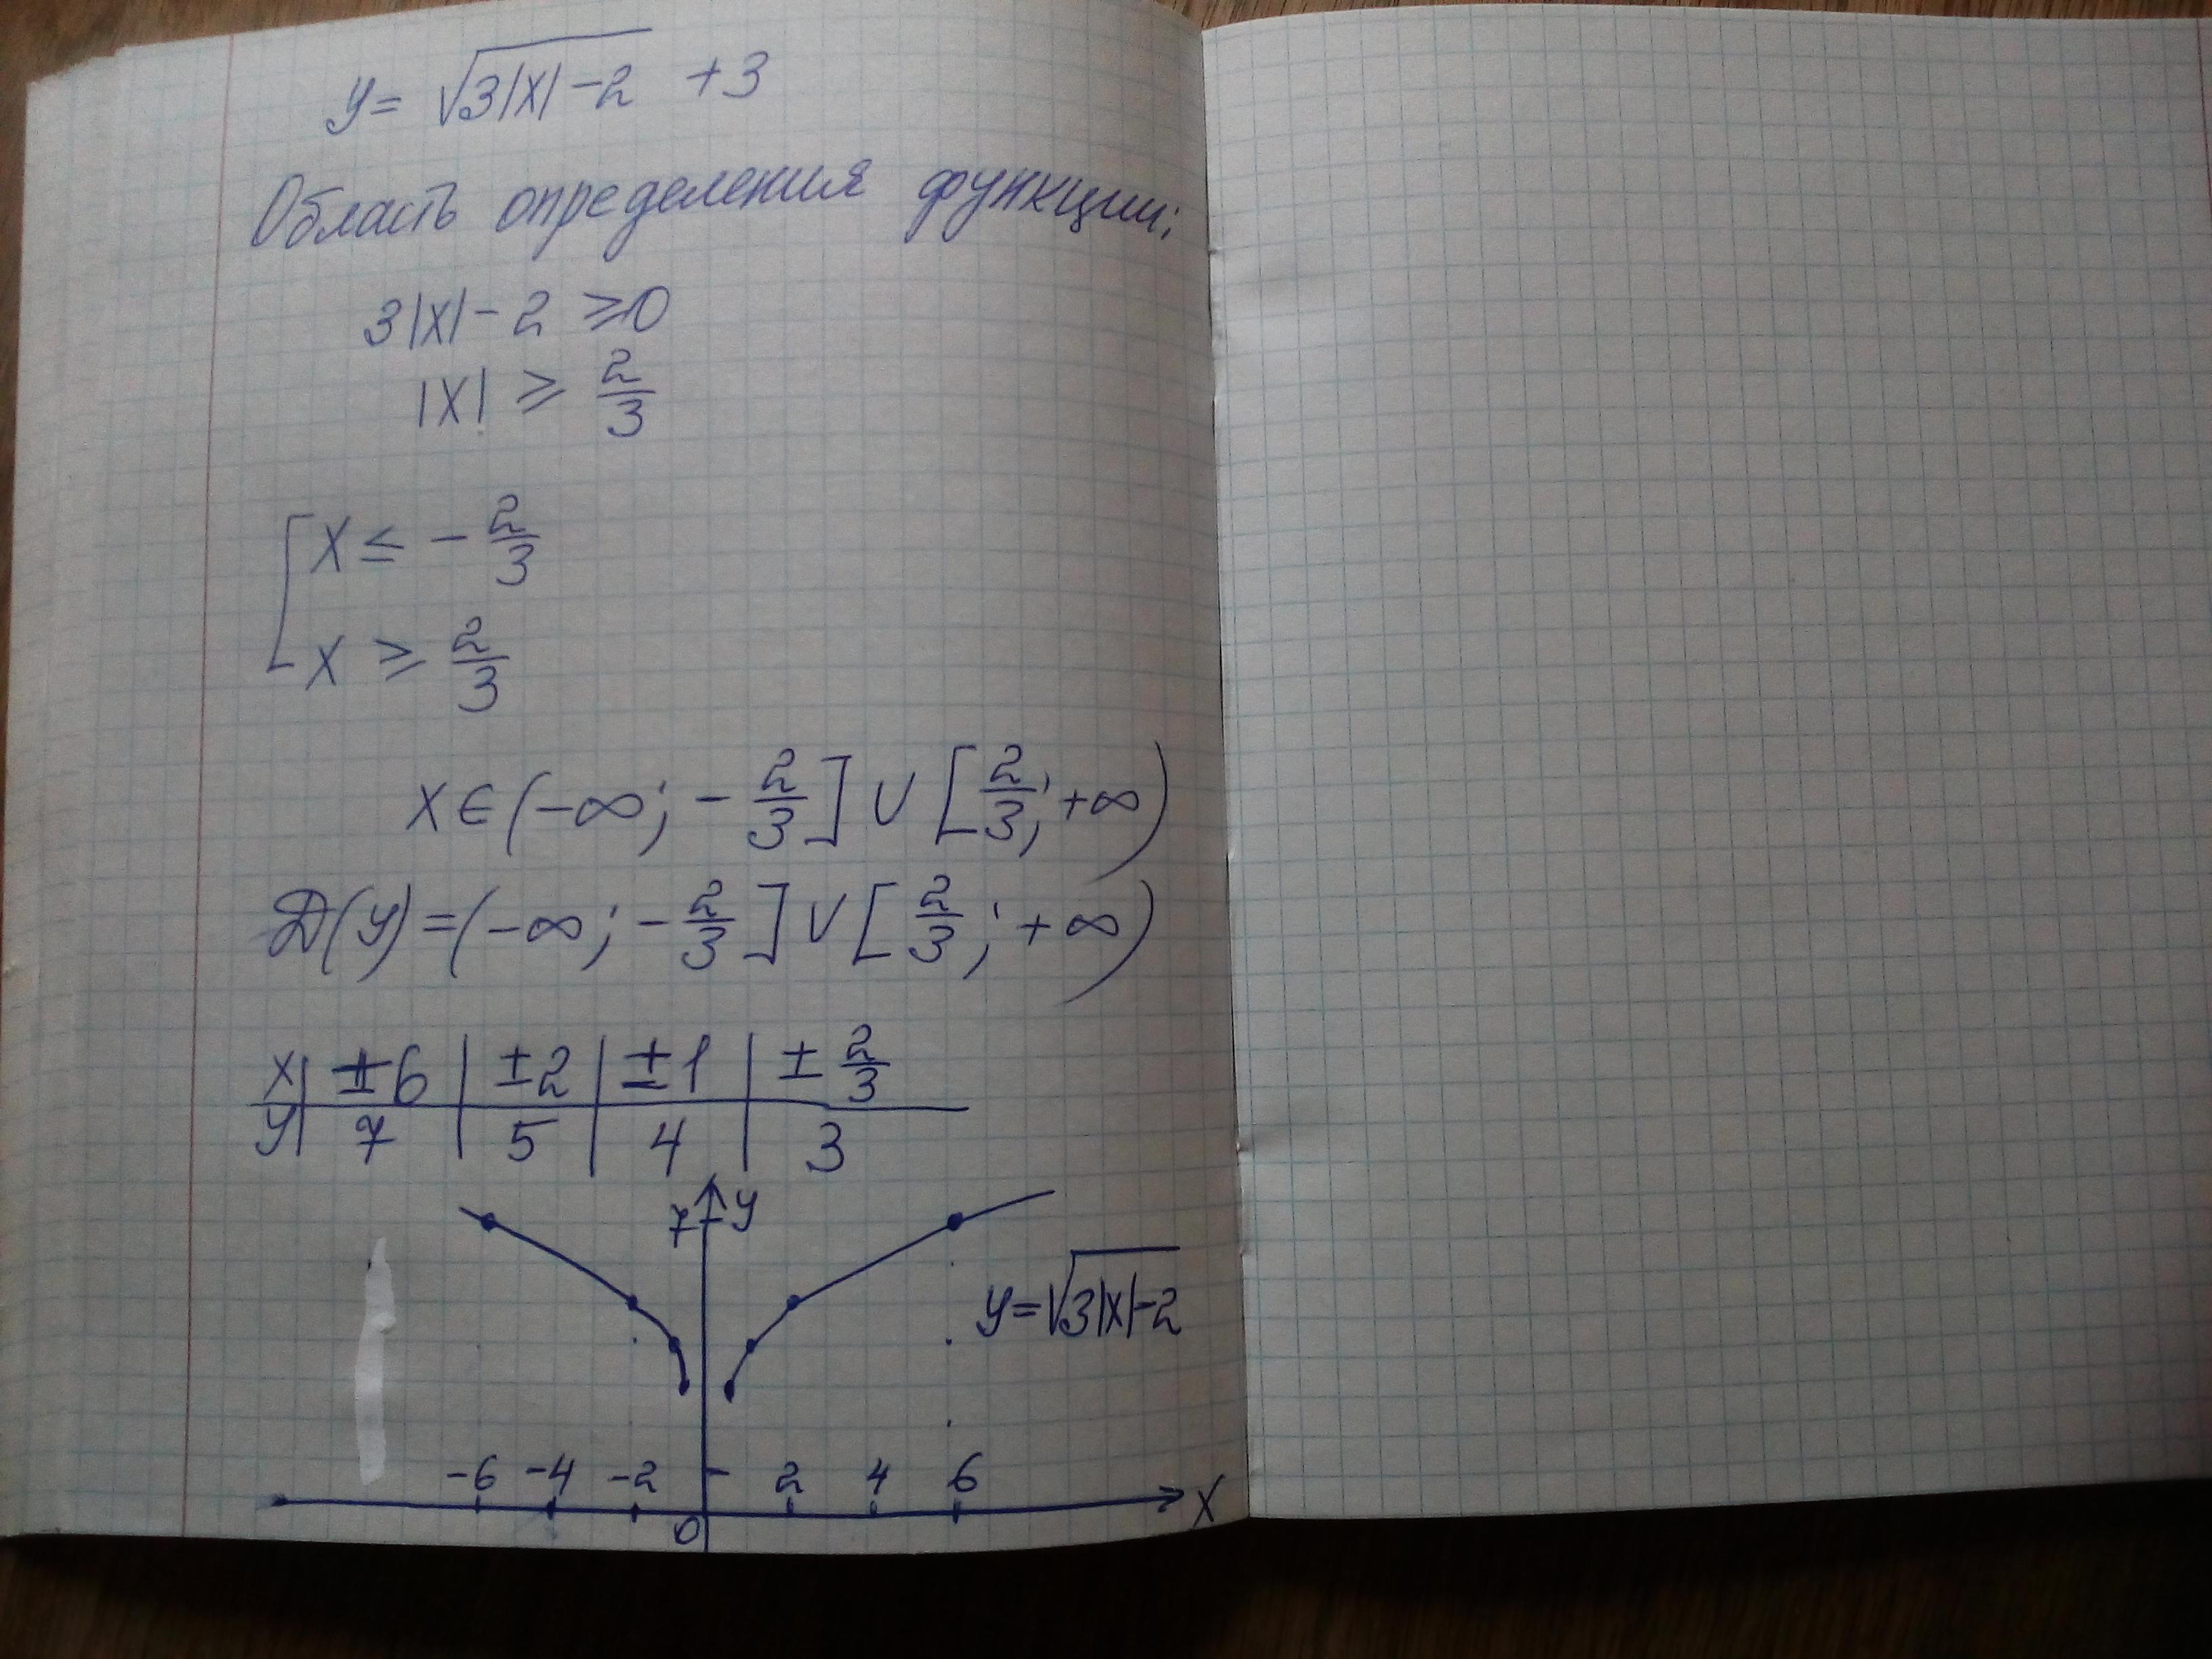 y = √3|x| - 2 + 3
Область определения функции:
3|x| - 2 ⩾ 0
|x| ⩾ 2/3
[ x ≤ - 2/3
x ⩾ 2/3
x ∈ (-∞; - 2/3] ∪ [2/3; +∞)
D(y) = (-∞; - 2/3] ∪ [2/3; +∞)
x | ±6 | ±2 | ±1 | ± 2/3
y | 7 | 5 | 4 | 3
7 y
y = √3|x| - 2
-6 -4 -2 2 4 6
0 x